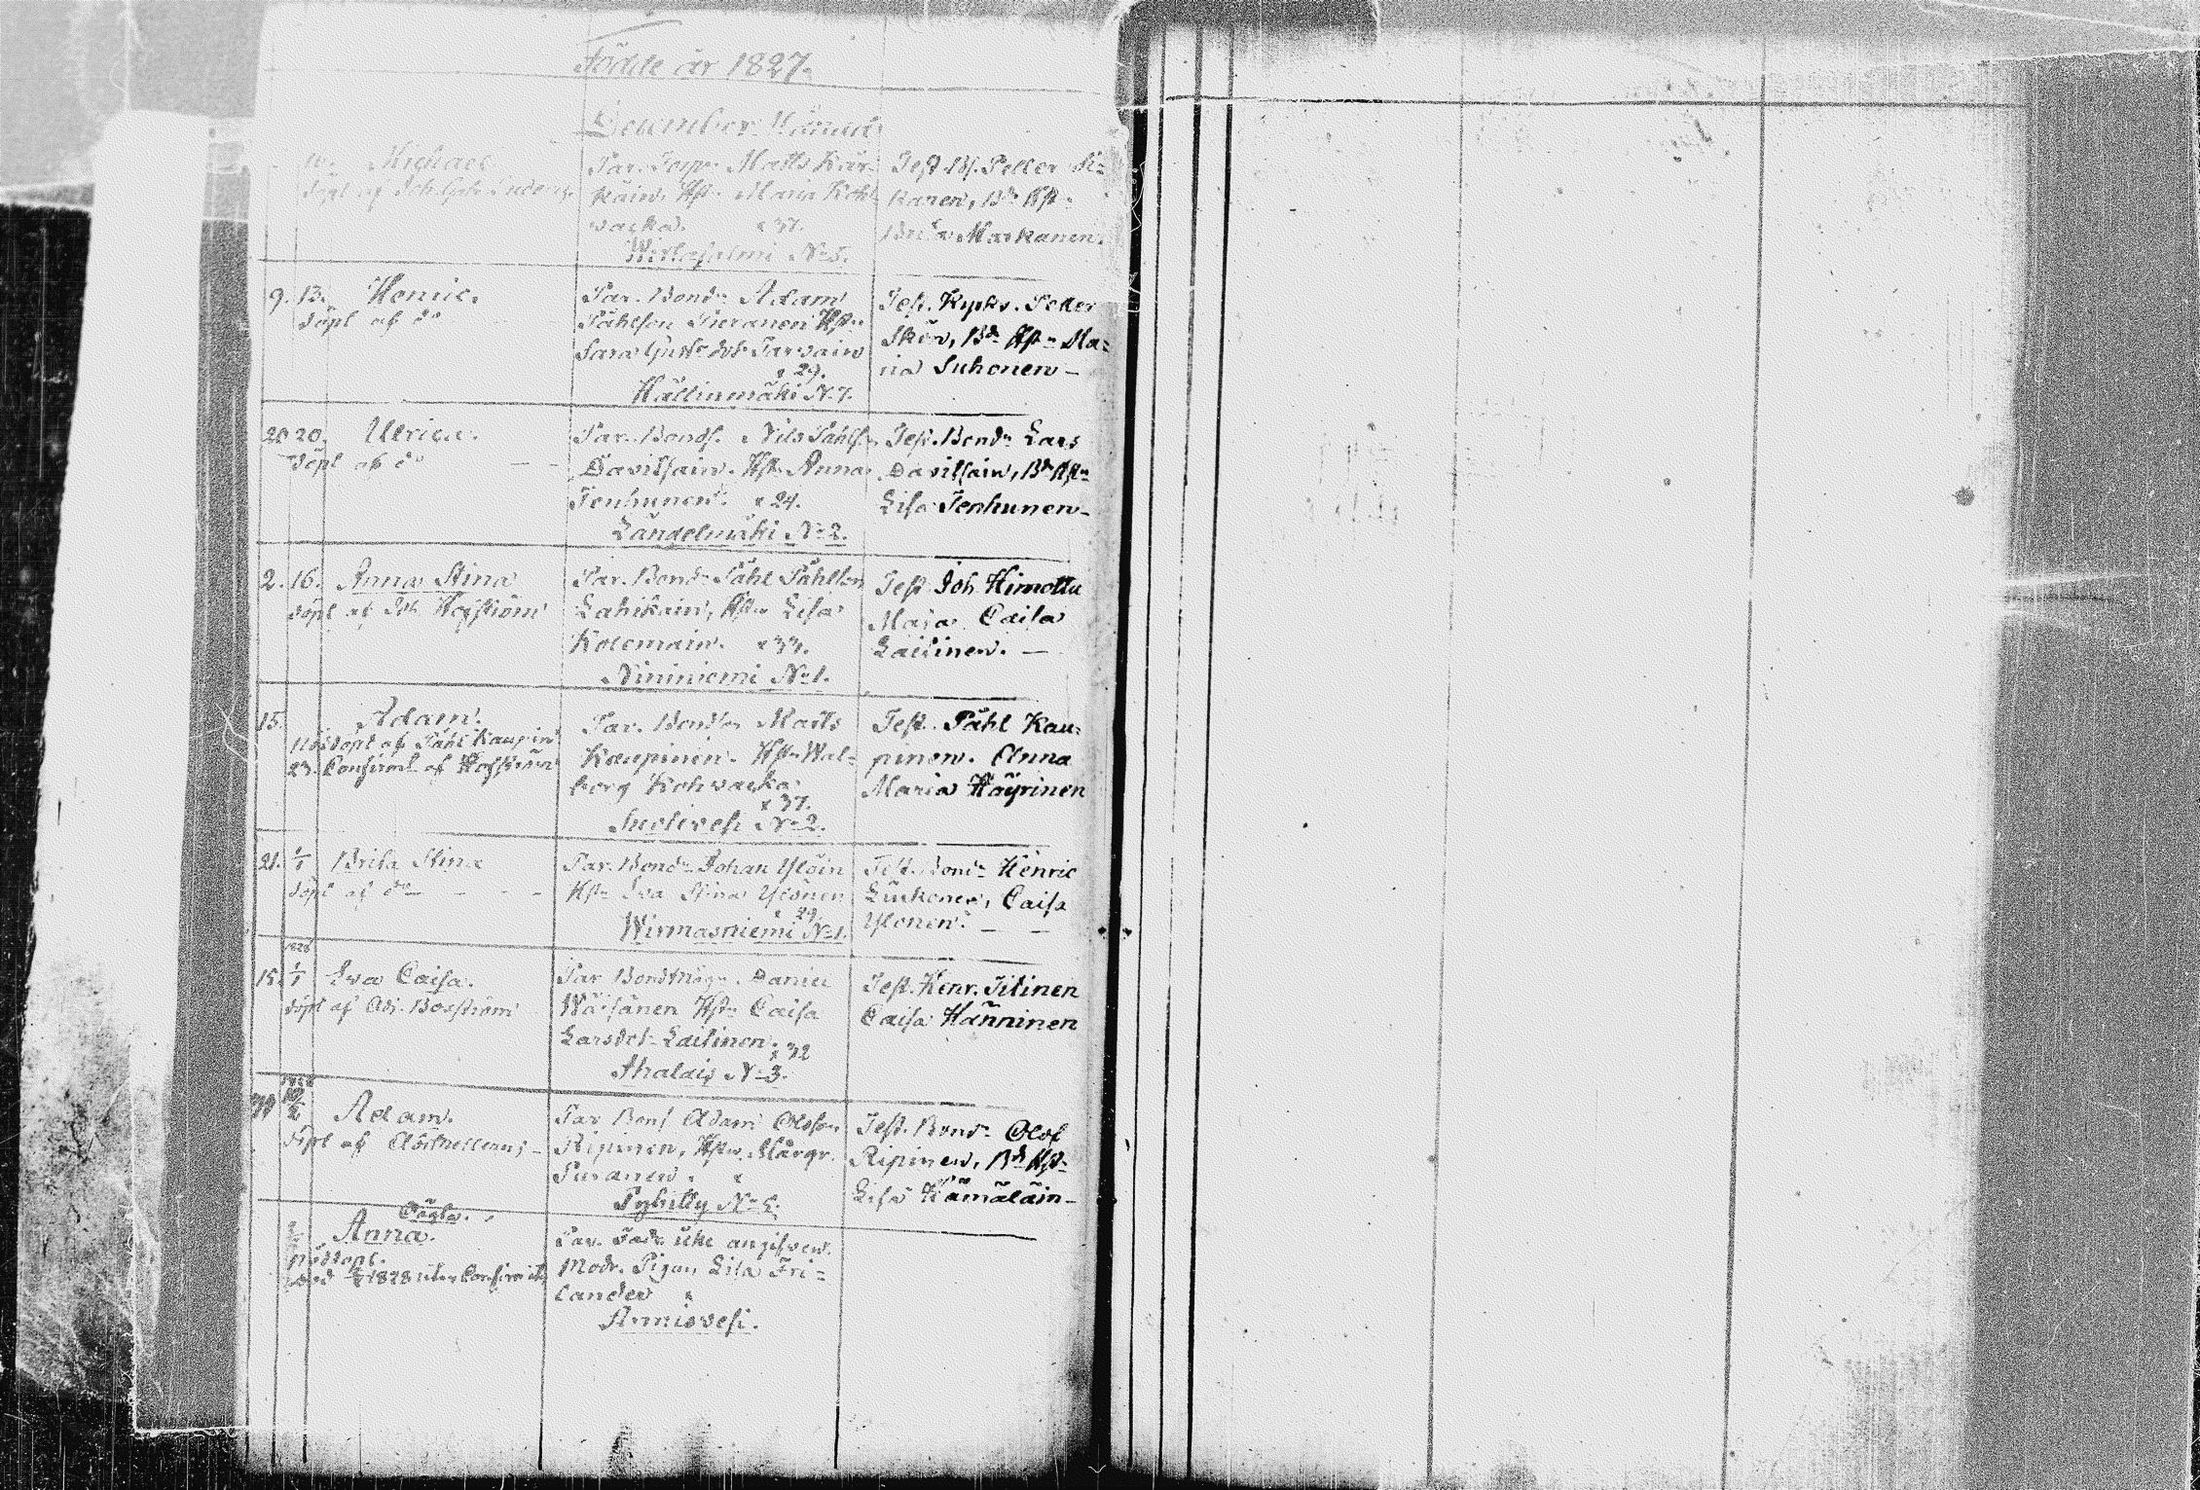 Födde år 1827.
December Månad
10. Michael
döpt af Joh. Gab.
Par. Torp. Matts Kär-
käin, Hst. Maria Koh-
wacka. x 37.
Wirtasalmi N. 5.
Test. Bd. Petter Si-
karen, Bd. Hst.
Brita Markanen.
9. 13. Henric.
döpt af do
Par. Bonde Adam
Påhlson Hst.
Sara Gust. dotr Tarvain
x 29.
Hällinmäki N. 7.
Test. Kypks. Petter
Skön, Bd. Hst. Ma-
ria Suhonen -
20 20. Ulrica.
döpt af do - -
Par. Bonds. Nils Påhls.
Davitsain. Hst. Anna
Tenhunen. x 24.
Längelmäki N. 2.
Test. Bonde Lars
Davitsain, Bd. Hst.
Lisa Tenhunen -
2. 16. Anna Stina
döpt af Joh. Hofström
Par. Bonde Påhl Påhlson
Lahikain, Hst. Lisa
Kolemain. x 33.
Nininiemi N. 1.
Test. Joh Himottu
Maja Caisa
Laitinen. -
15. Adam.
Nöddöpt af Påhl Kaupin
23. Confirmt. af Hofström
Par. Bonds. Matts
Kaupinen. Hst. Wal-
borg Kohwacka
x 37.
Suoivesi N. 2.
Test. Påhl Kau-
pinen. Anna
Maria Häyrinen
21. 1/1 Brita Stina
döpt af do - - -
Par. Bonde Johan Ylöin
Hst. Eva Stina Ylönen
x 29
Wirmasniemi N. 1.
Test. Bonde Henric
Liukonen, Caisa
Ylönen. - -
1828
15. 1/1 Eva Caisa.
döpt af Adj. Bosström
Par Bondmåg. Daniel
Wäisänen Hst. Caisa
Larsdot. Laitinen.
x 32
N. 3.
Test. Henr. Iitinen
Caisa Hänninen
1828
Adam.
döpt af
Par Bons Adam Olofson
Ripinen, Hst. Margr.
Pusanen. x
N. 5.
Test. Bond. Olof
Ripinen, Bd. Hst.
Lisa Hämäläin -
Oägta.
Anna.
Nöddöpt.
död 1828 utan Confirmt.
Par. Fadr. icke angifven.
Modr. Pigan Lisa Fri-
lander x
Annisvesi.